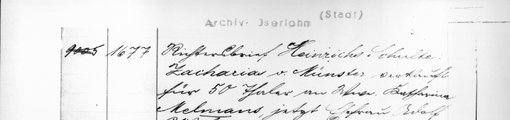 Archiv Iserlohn (Stadt)
1677 Richterbrief Heinrichs Schulte
Zacharias v. Münster verkauft
für 50 Thaler an Wwe. Katharina
Melmans, jetzt Ehefrau